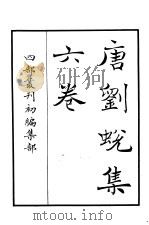 唐劉蛻集
六卷
四部叢刊初編集部
www.mtoou.info